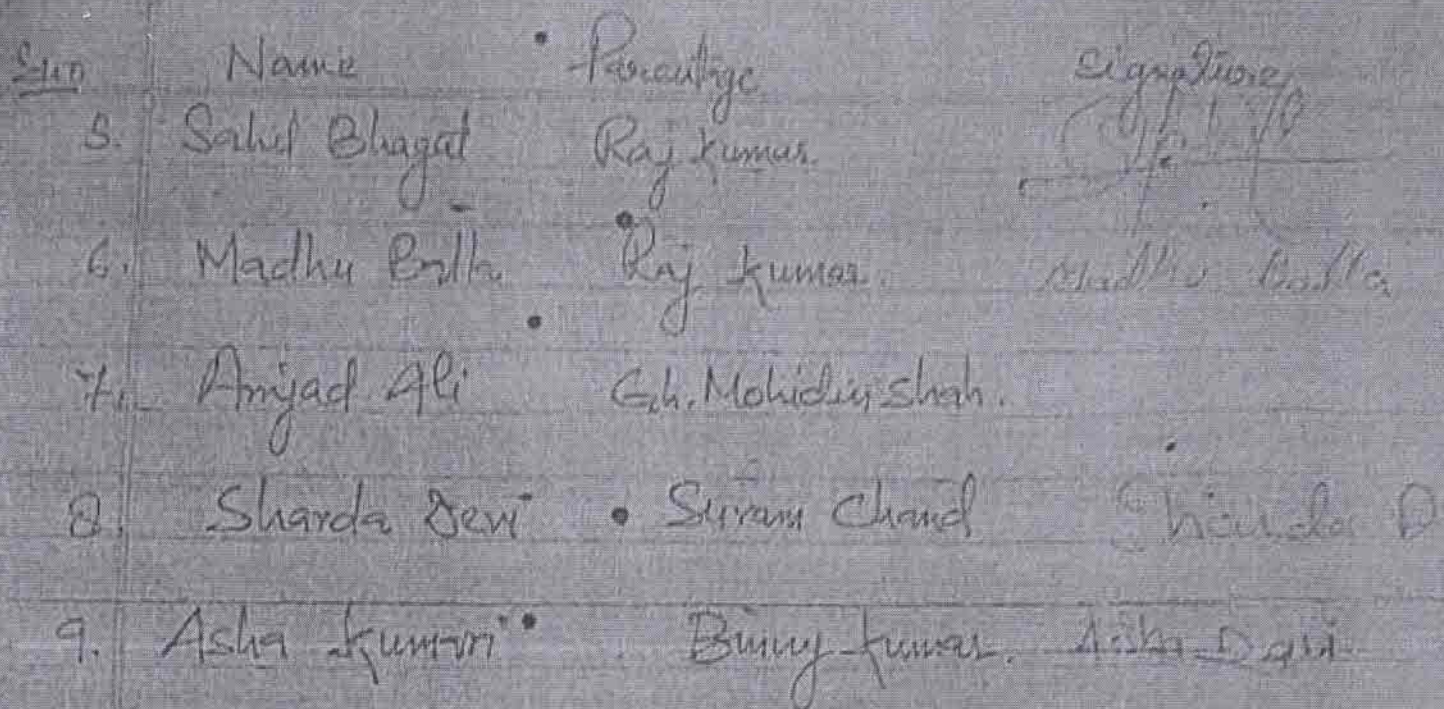 S.no Name Parentage Signature
5. Sahil Bhagat Raj Kumar.
6. Madhu Raj Kumar. Madhu
7. Amjad Ali Gh. Mohidin Shah.
8. Sharda Devi Suram Chand Sharda D
9. Asha Kumari Binny Kumar. Asha Devi